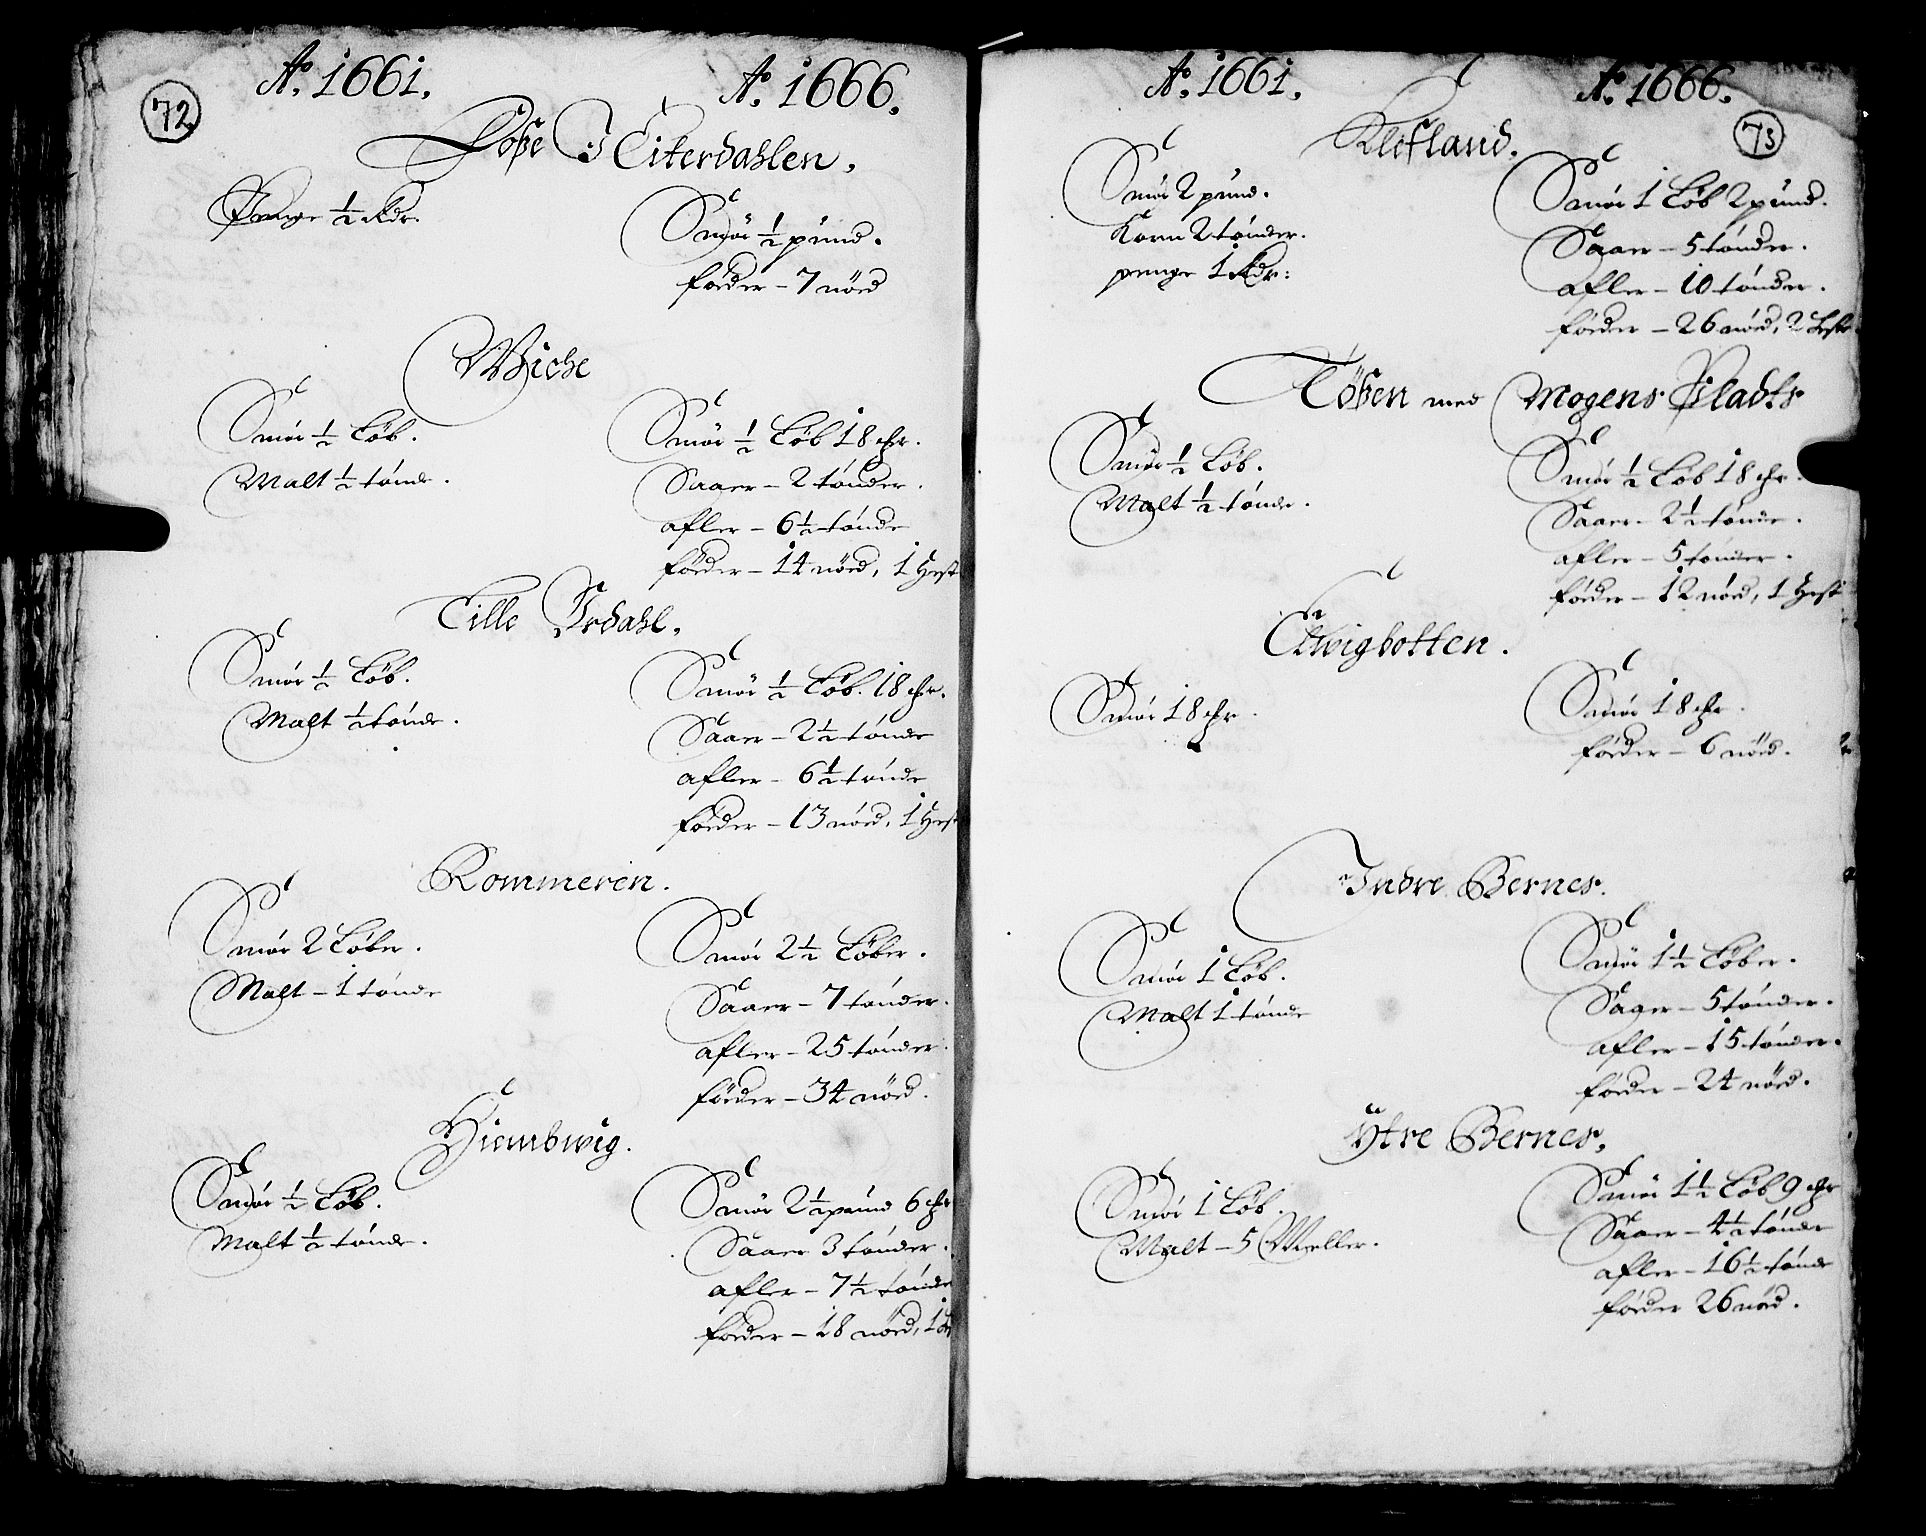 72
Ao. 1661. Ao. 1666.
Loße I Eiterdahlen.
Penge ½ Rdr.
Smör ½ pund.
föeder - 7 nöed
Wiche
Smör ½ Löb.
Malt ½ tönde.
Smör ½ Löb 18 mkr.
Saaer - 2 tönder.
afler - 6½ tönde
föeder - 14 nöed, 1 Hest
Lille Ardahl.
Smör ½ Löb.
Malt ½ tönde.
Smör ½ Löb. 18 mkr.
Saaer - 2½ tönde
afler - 6½ tönde
föeder - 13 nöed, 1 Hest
Rommeren.
Smör 2 Löber.
Malt - 1 tönde
Smör 2½ Löber.
Saaer - 7 tönder.
afler - 25 tönder.
föeder - 34 nöed.
Hiembwig.
Smör ½ Löb.
Malt ½ tönde.
Smör 2½ pund 6 mkr
Saaer 3 tönder.
afler - 7½ tönde
föeder - 18 nöed, 1
73
Ao. 1661. Ao. 1666.
Klefland.
Smör 2 pund.
Korn 2 tönder.
penge 1 Rdr:
Smör 1 Löb 2 pund.
Saaer - 5 tönder.
afler - 10 tönder.
föeder - 26 nöed, 2 Heste
Tößen med Mogens Pladts
Smör ½ Löb.
Malt ½ tönde.
Smör ½ Löb 18 mkr.
Saaer - 2½ tönde.
afler - 5 tönder.
föeder - 12 nöed, 1 Hest
Elwigbotten.
Smör 18 mkr.
Smör 18 mkr.
föeder - 6 nöed.
Indre Bernes.
Smör 1 Löb.
Malt 1 tönde
Smör 1½ Löber.
Saaer - 5 tönder.
afler - 15 tönder.
föeder - 24 nöed.
Ytre Bernes.
Smör 1 Löb.
Malt - 5 Meller.
Smör 1½ Löb 9 mkr
Saaer - 4½ tönde
afler - 16½ tönde
föeder 26 nöed.